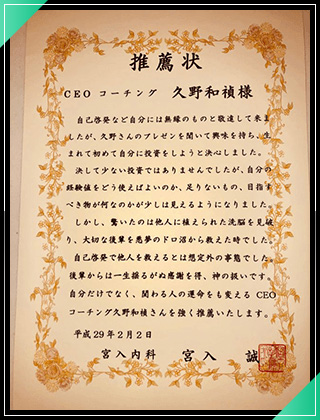 推薦状
CEO コーチング 久野和禎様
自己啓発など自分には無縁のものと敬遠して来ま
したが、久野さんのプレゼンを聞いて興味を持ち、生
まれて初めて自分に投資をしようと決心しました。
決して少ない投資ではありませんでしたが、自分の
経験値をどう使えばよいのか、足りないもの、目指す
べき物が何なのかが少しは見えるようになりました。
しかし、驚いたのは他人に植えられた洗脳を見破
り、大切な後輩を悪夢のドロ沼から救えた時でした。
自己啓発で他人を救えるとは想定外の事態でした。
後輩からは一生揺るがぬ感謝を得、神の扱いです。
自分だけでなく、関わる人の運命をも変える CEO
コーチング久野和禎さんを強く推薦いたします。
平成29年2月2日
宮入内科 宮入 誠